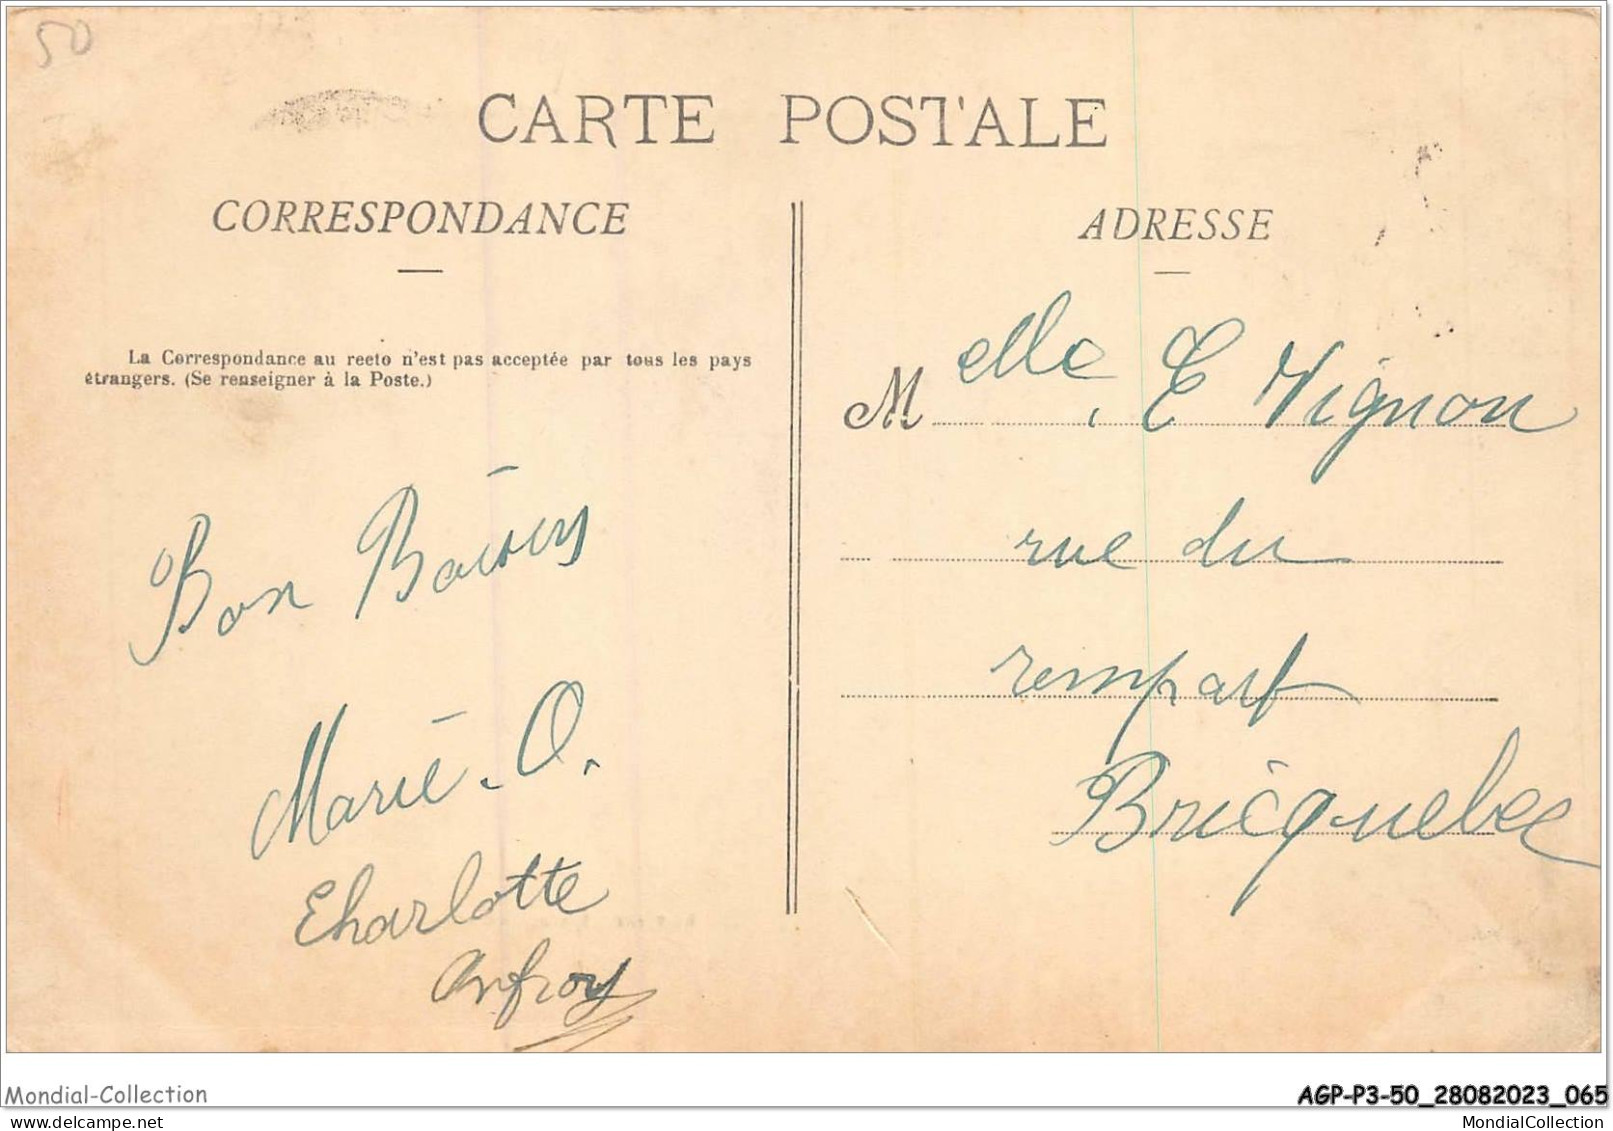 50
CARTE POSTALE
CORRESPONDANCE
La Correspondance au recto n'est pas acceptée par tous les pays
étrangers. (Se renseigner à la Poste.)
Bon Baisers
Marie. O.
Charlotte
Anfroy
ADRESSE
Melle E Vignon
rue du
rempart
Bricquebec
Mondial-Collection
AGP-P3-50_28082023_065
www.delcampe.net
MondialCollection